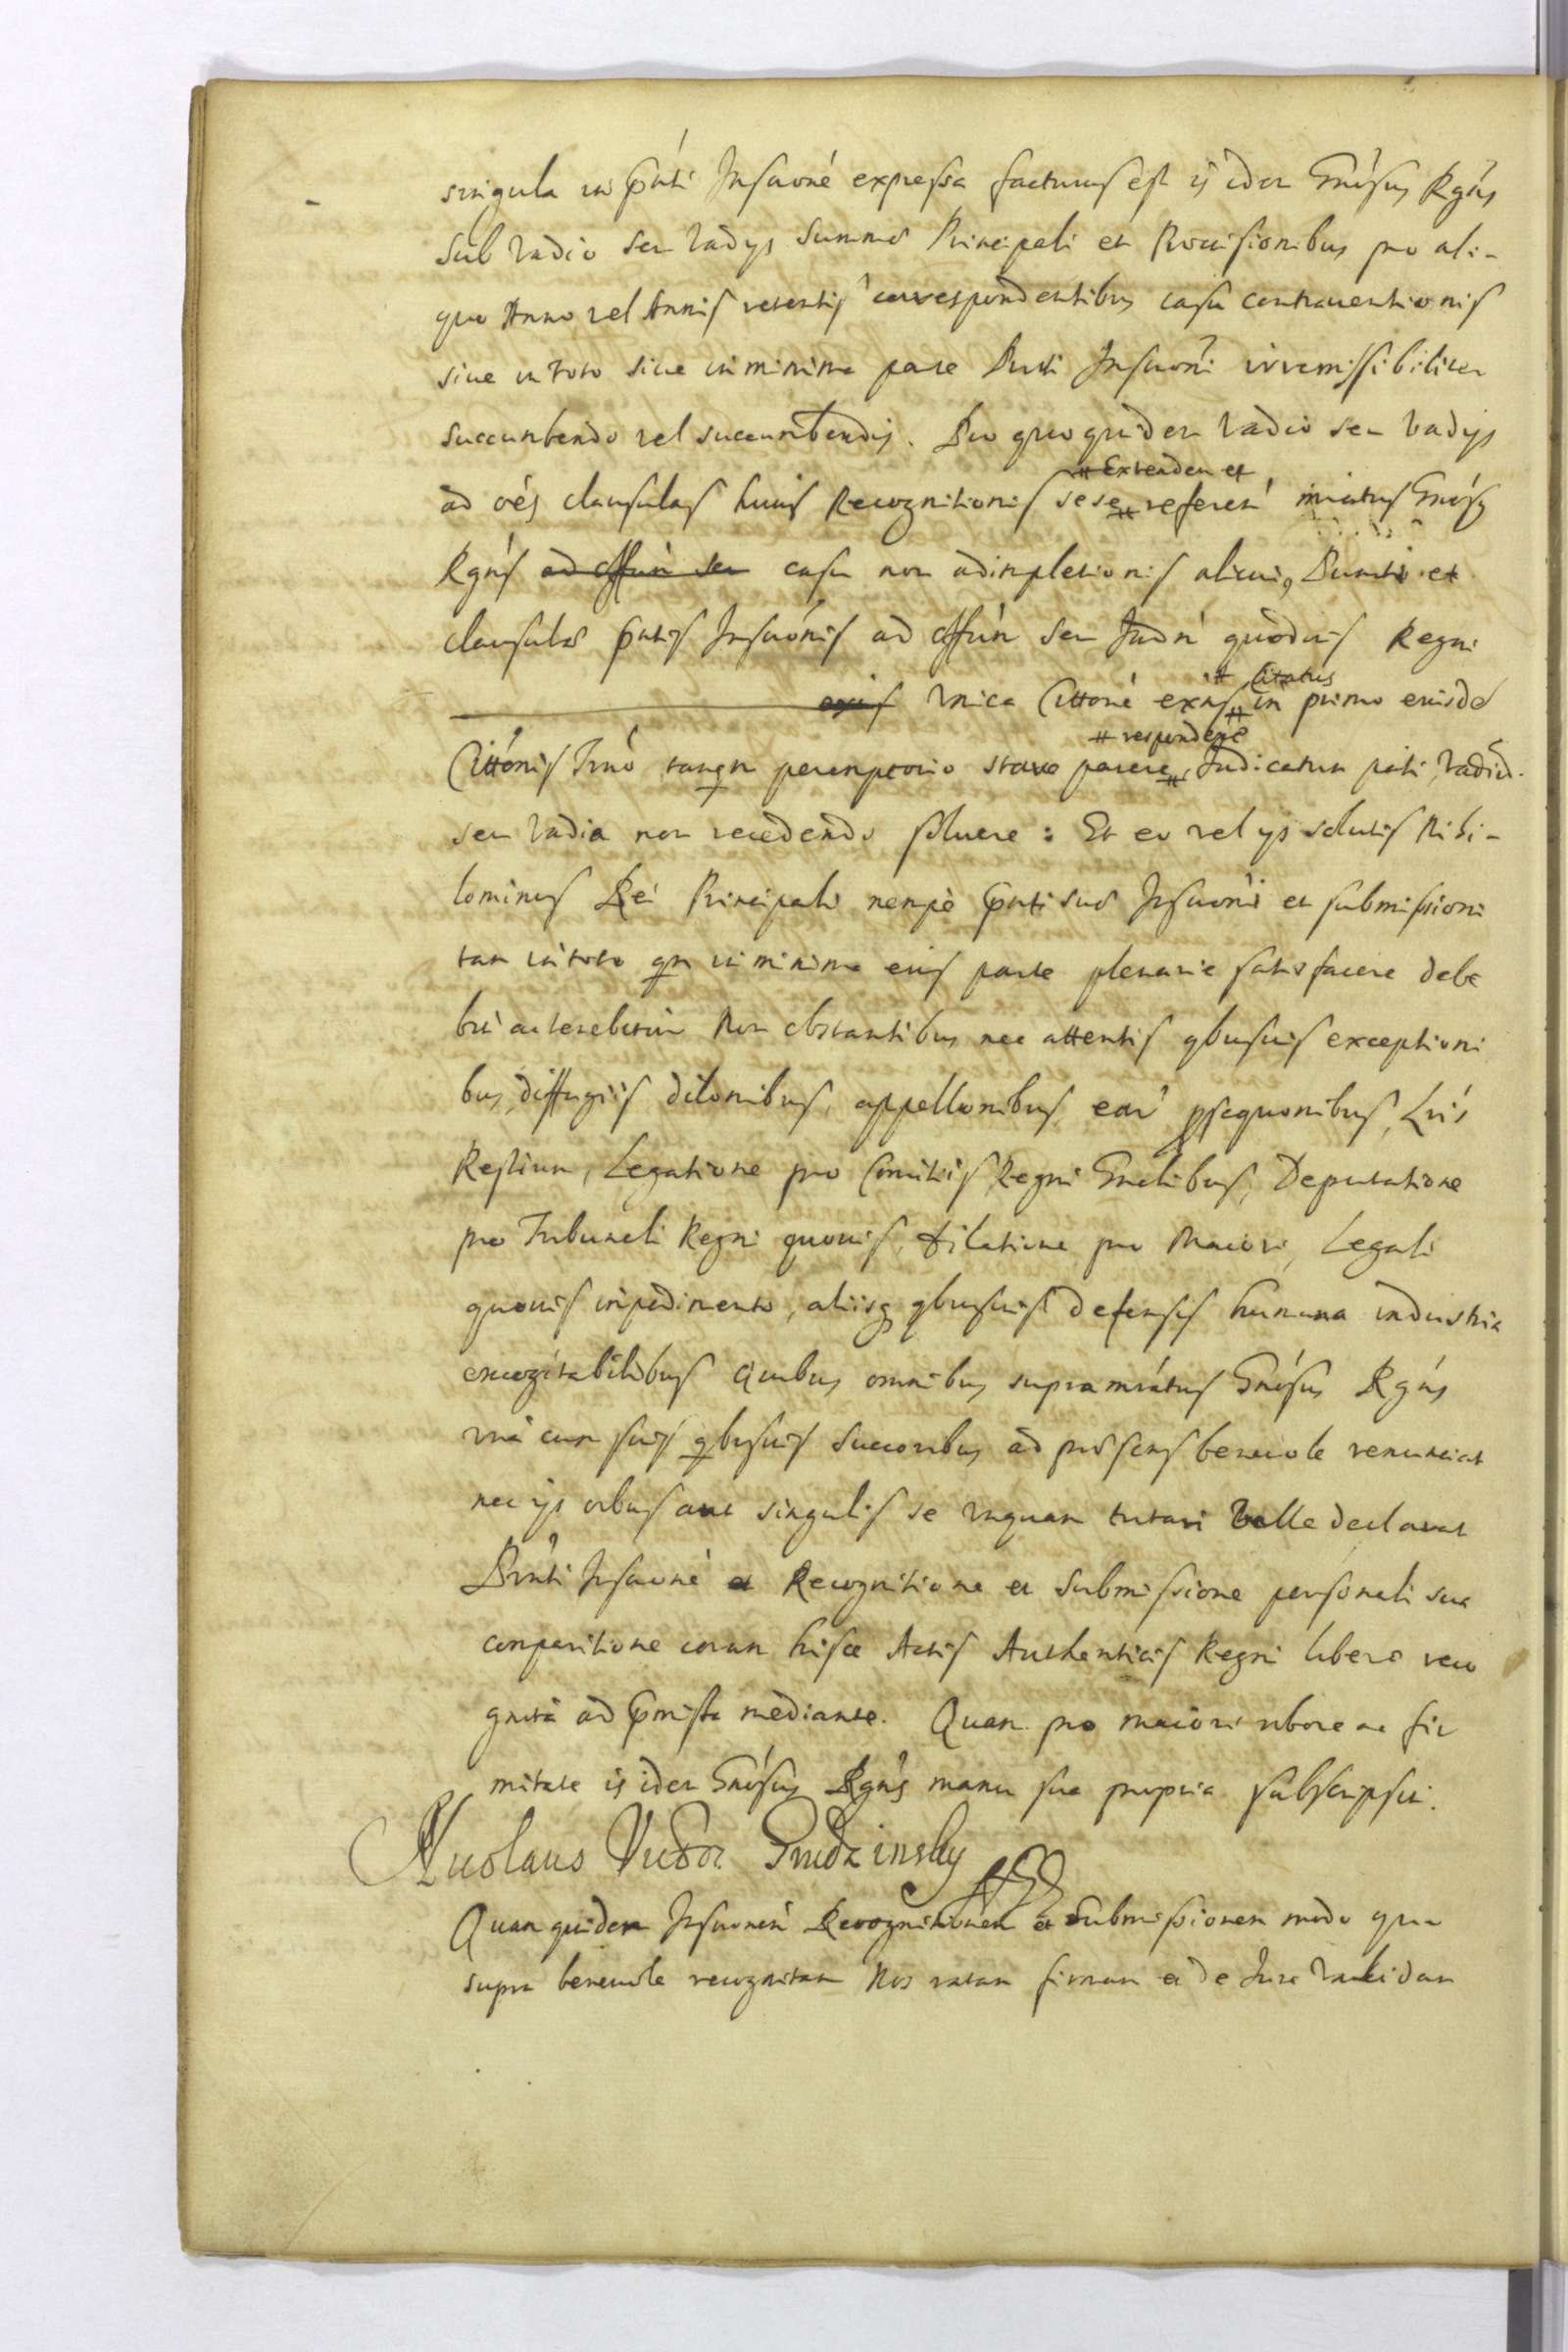 singula in pnti Inscrone expressa facturus est is idem Gnosus Rgns
sub vadio seu vadys summæ Principali et Provisionibus pro ali-
quo Anno vel Annis retentis correspondentibus casu contrauentionis
siue in toto siue in minima parte Pnti Inscroni irremissibiliter
succumbendo vel succumbendis. Pro quo quidem vadio seu vadys
# Extendens et
ad oes clausulas huius Recognitionis sese # referen miatus Gnosus
Rgns ad Offm seu casu non adimpletionis alicuius Puncti et
clausulæ pntis Inscronis ad Offm seu Judm quoduis Regni
# Citatus
Vnica Cittone exns # in primo eiusdē
# respondere
Cittonis Trno tanqm peremptorio stare parere # Judicatum pati vadiū
seu vadia non recedendo soluere : Et eo vel ys solutis Nihi-
lominus Rei Principali nempè pnti suæ Inscroni et submissioni
tam in toto qm in minima eius parte plenarie satisfacere debe
bit ac tenebitur Non obstantibus nec attentis qbusuis exceptioni
bus, diffugiis dilonibus, appellonibus ear psequonibus, Lris
Restium, Legatione pro Comitiis Regni Gnalibus, Deputatione
pro Tribunali Regni quouis, dilatione pro Maiori, Legali
quouis impedimento, aliisq qbusuis defensis humana industria
excogitabilibus Quibus omnibus supramiatus Gnosus Rgns
vna cum suis qbusuis Succoribus ad præsens beneuole renunciat
nec ys oibus aut singulis se vnquam tutari velle declarat
Pnti Inscrone et Recognitione et Submissione personali sua
comparitione coram hisce Actis Authenticis Regni libere reco
gnita ad pmissa mediante. Quam pro maiori robore ac fir
mitate is idem Gnosus Rgns manu sua propria subscripsit.
Nicolaus Victor Grudzinsky
Quam quidem Inscronem Recognitionem et Submissionem modo quo
supra beneuole recognitam Nos ratam firmam et de Jure validam